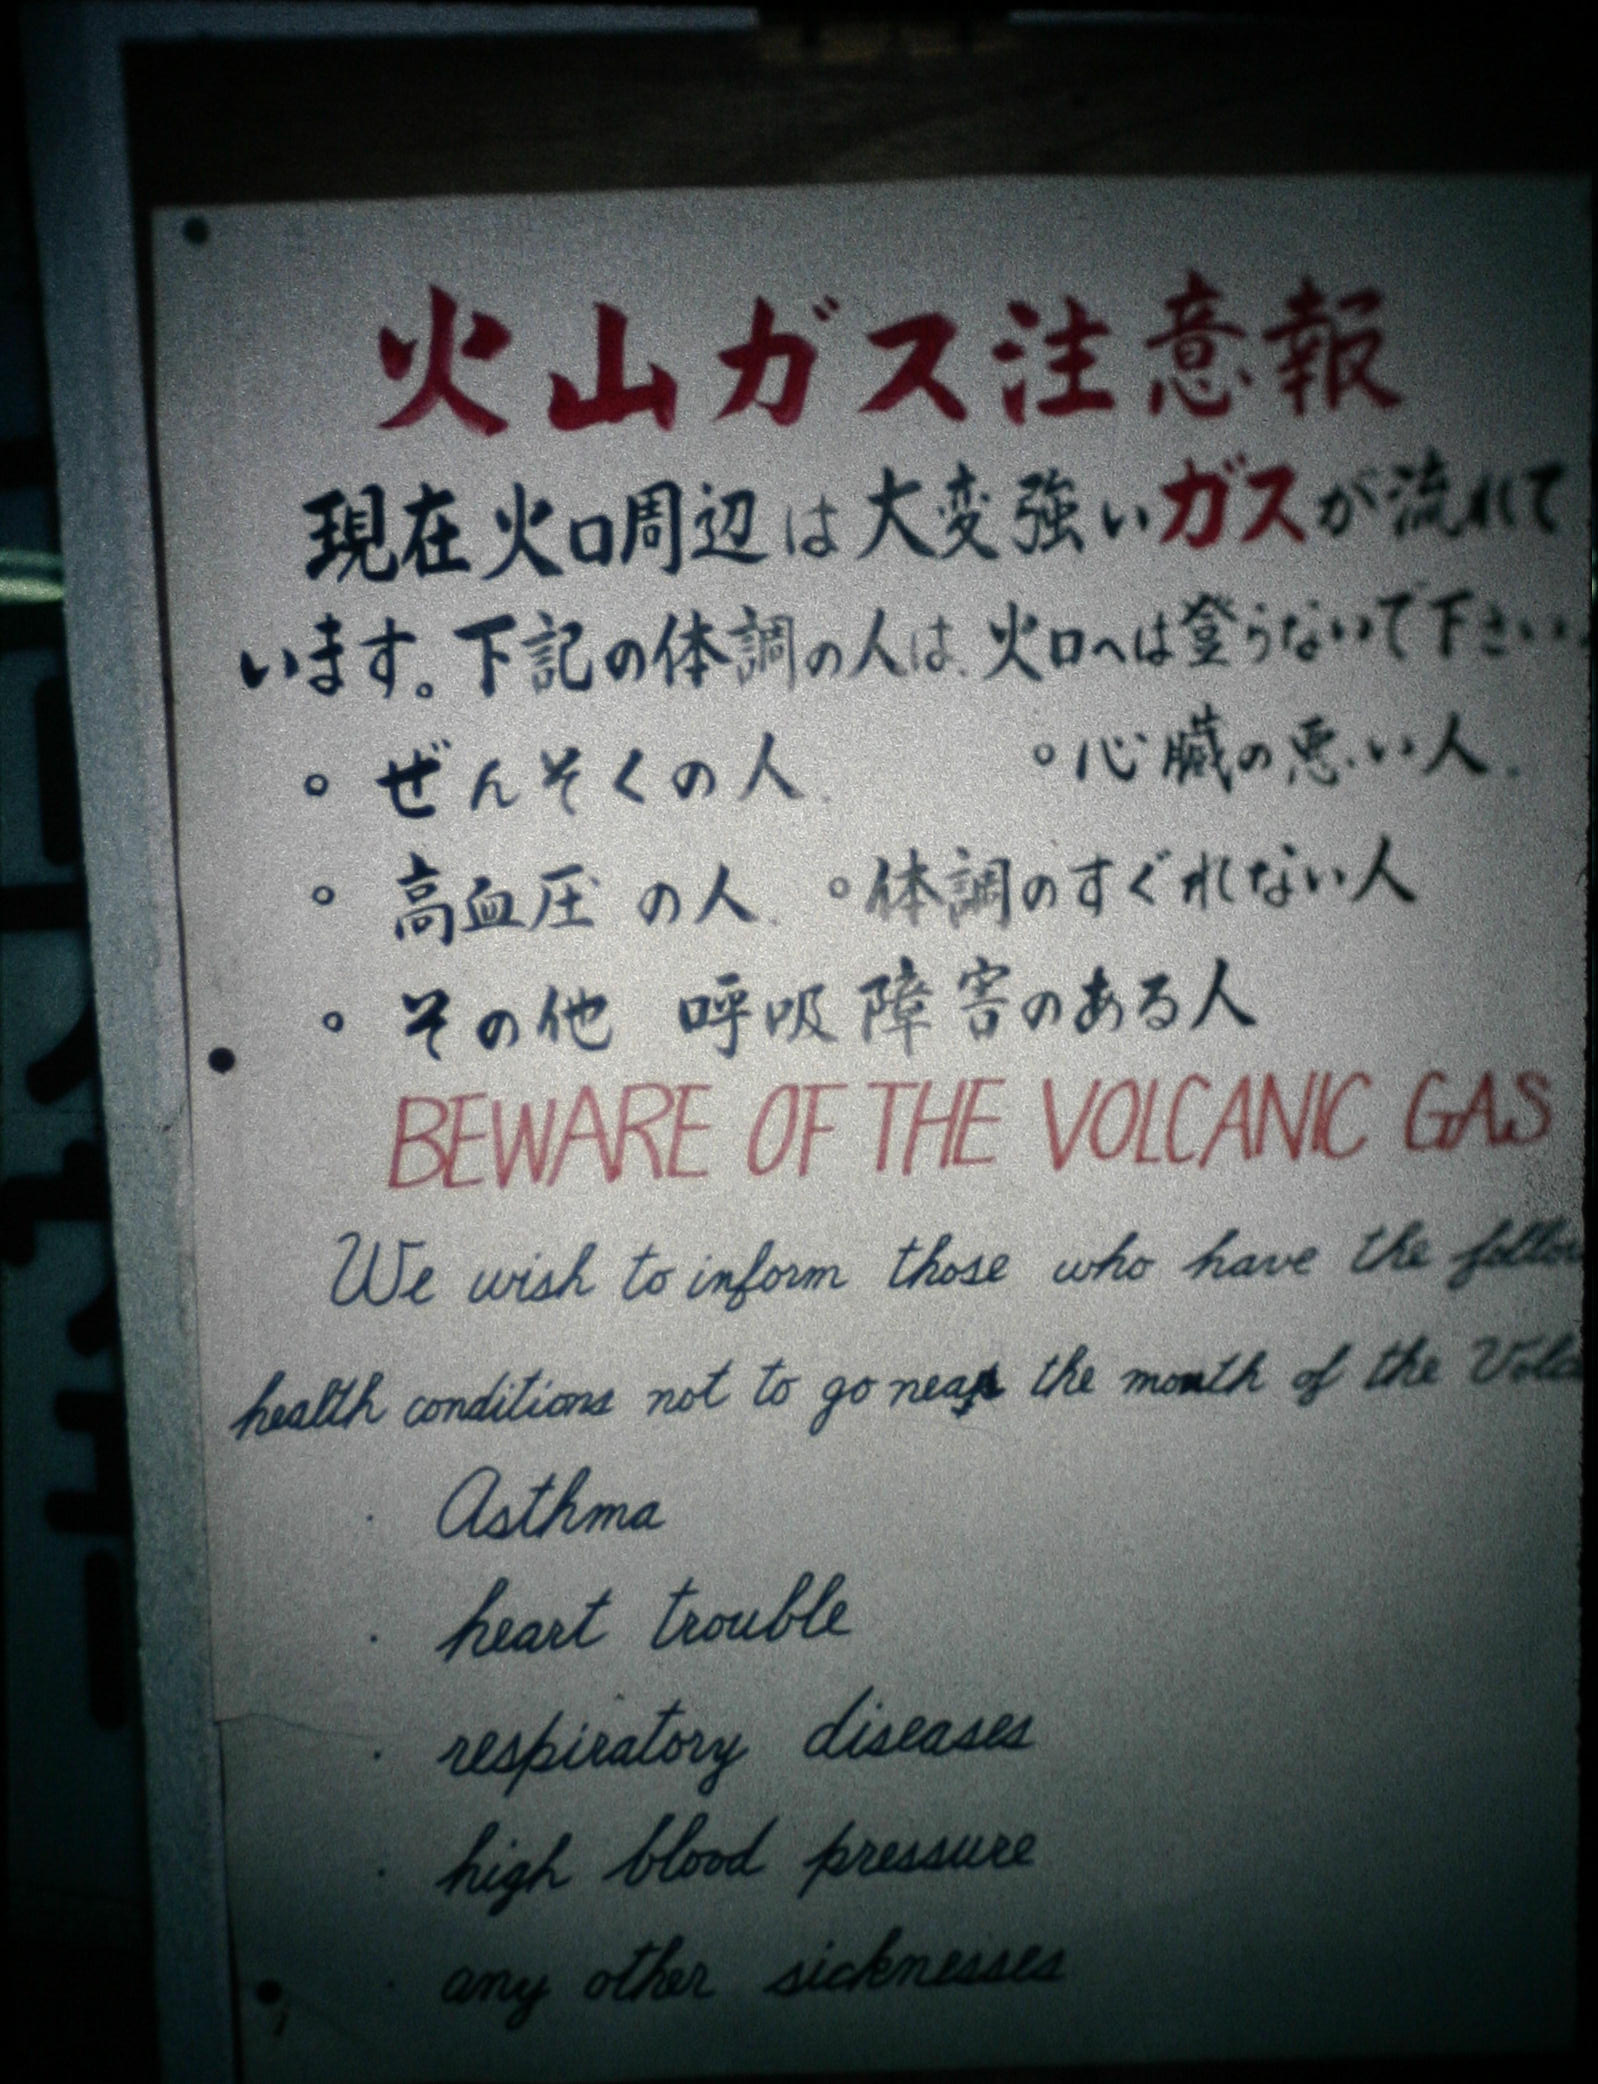 火山ガス注意報
現在火口周辺は大変強いガスが流れて
います。下記の体調の人は、火口へは登らないで下さい。
○ ぜんそくの人. ○心臓の悪い人.
○ 高血圧の人. ○体調のすぐれない人
○ その他 呼吸障害のある人
BEWARE OF THE VOLCANIC GAS
We wish to inform those who have the
health conditions not to go near the mouth of the
· Asthma
· heart trouble
· respiratory diseases
· high blood pressure
· any other sicknesses